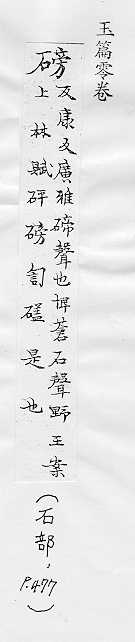 玉篇零卷
磅
康反廣雅碲聲也埤蒼石聲野王案
上林賦砰磅訇磕是也
(石部,P.477)